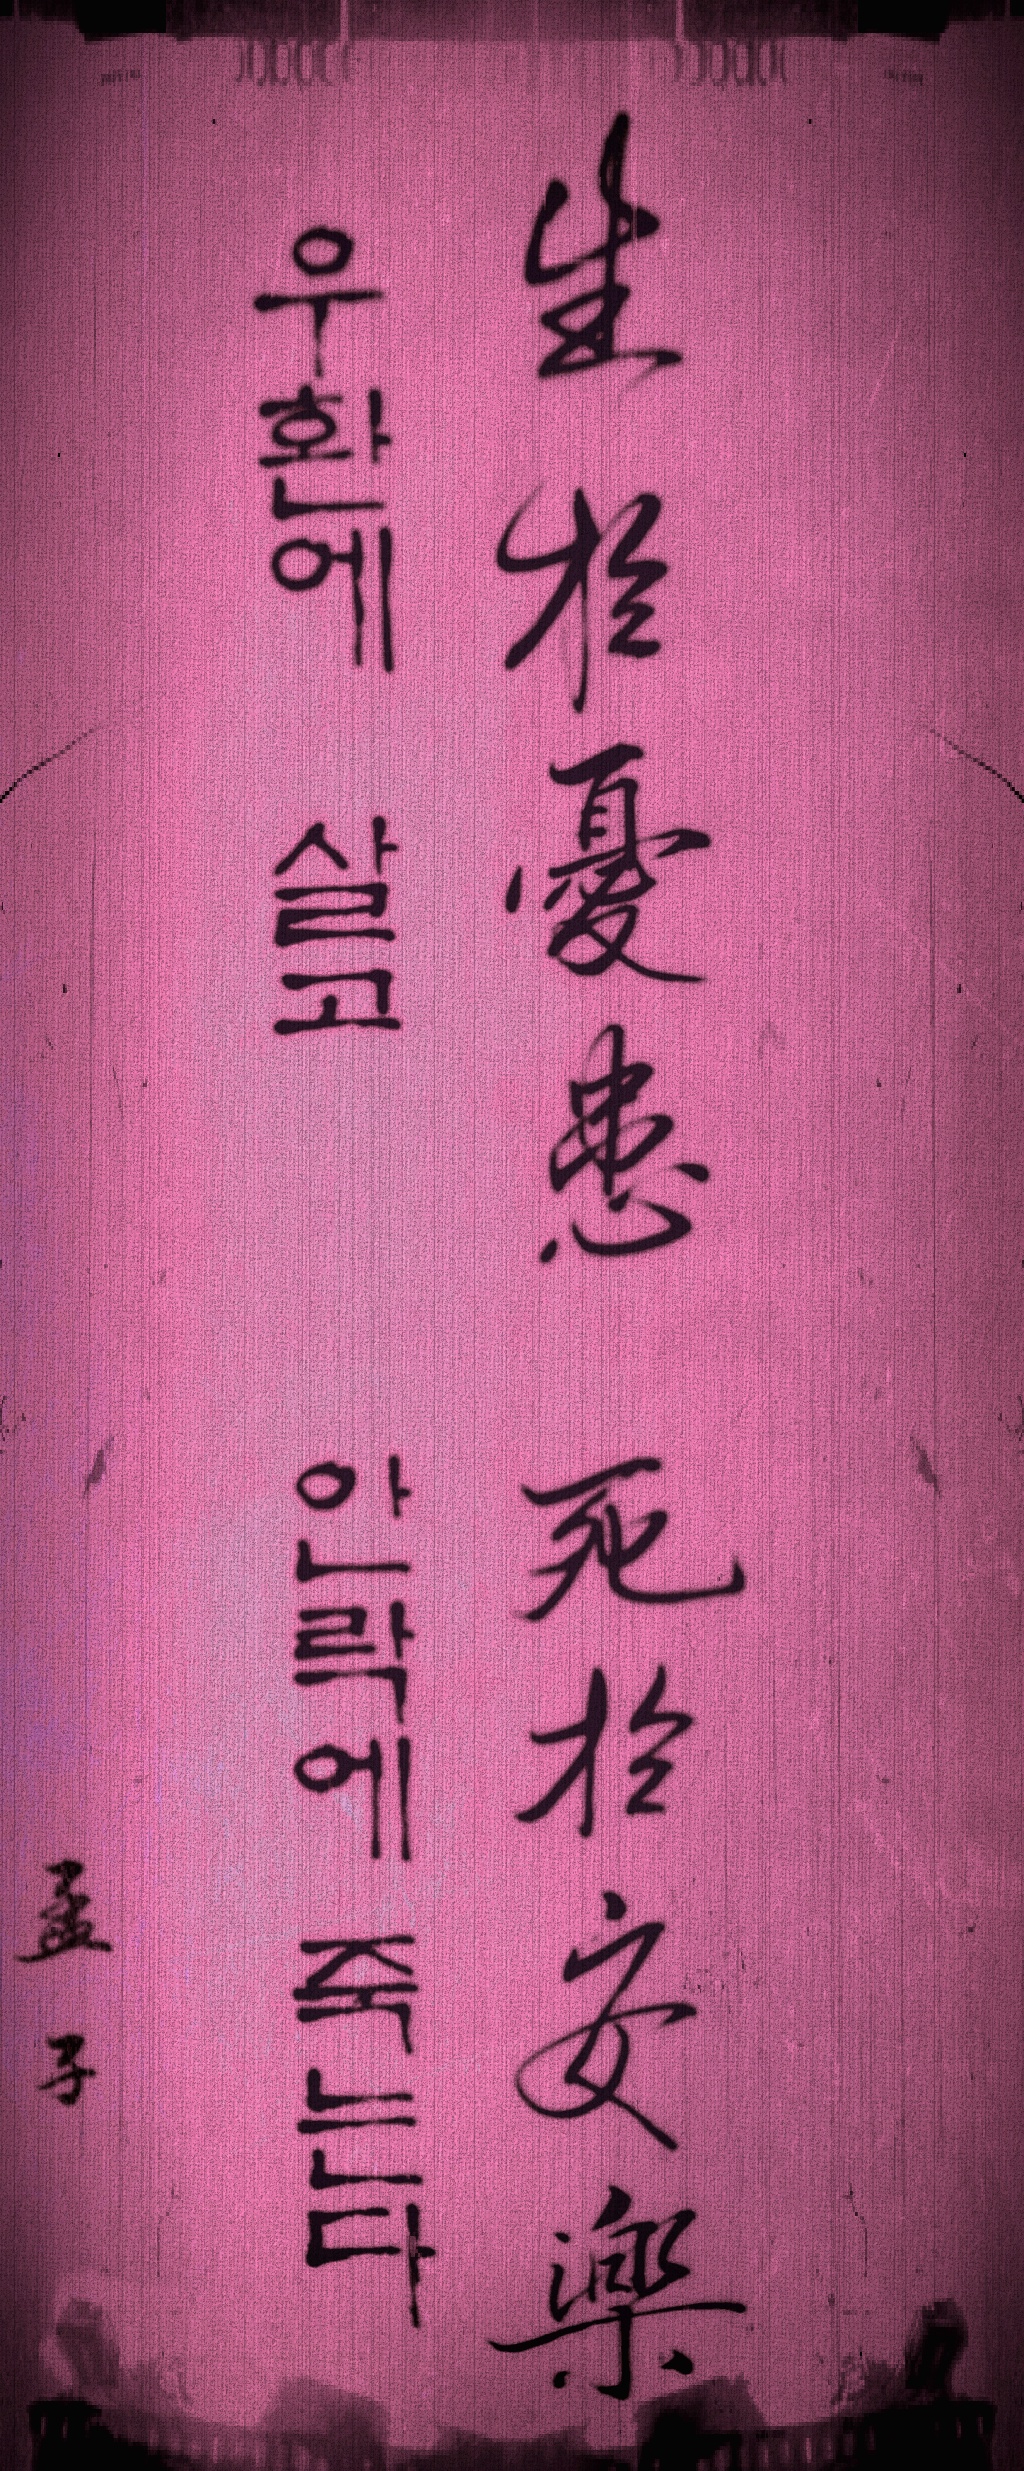 生於憂患 死於安樂
우환에 살고 안락에 죽는다
孟子